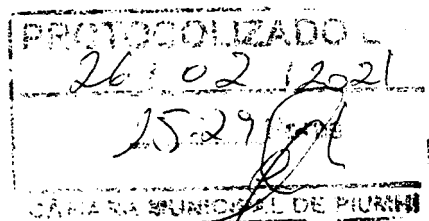 PROTOCOLIZADO
26 / 02 / 2021
15:29
CÂMARA MUNICIPAL DE PIUMHI